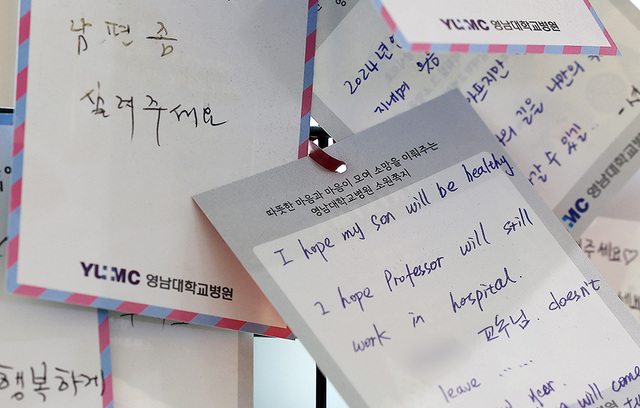 남편 좀
살려주세요
YUMC 영남대학교병원
YUMC 영남대학교병원
2024년
지내며
아프지만
나만의
길을
따뜻한 마음과 마음이 모여 소망을 이뤄주는
영남대학교병원 소원쪽지
I hope my son will be healthy
I hope Professor will still
work in hospital.
교수님. doesn't
leave ......
will come
MC 영남대
주세요♡
행복하게